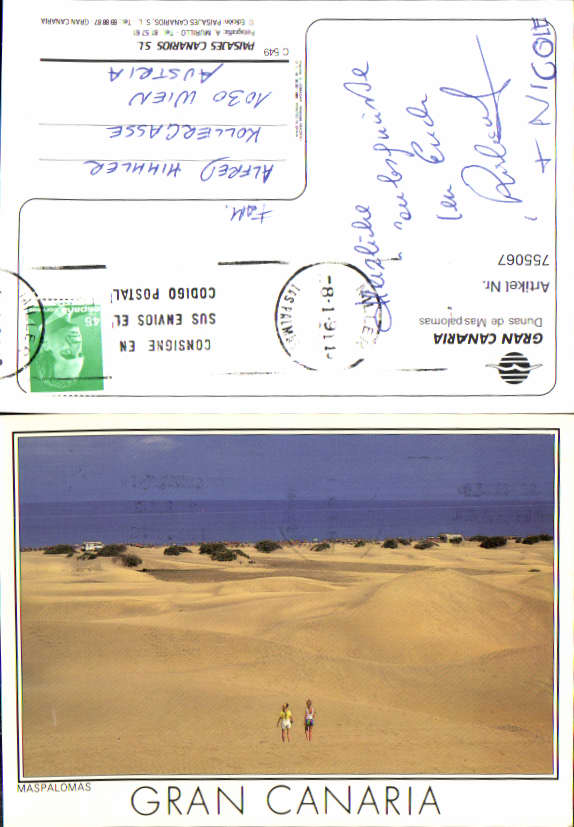 GRAN CANARIA
Dunas de Maspalomas
Artikel Nr.
755067
Herzliche
Urlaubsgrüsse
+ NICOLE
CONSIGNE EN
SUS ENVIOS EL
CODIGO POSTAL
LAS PALMAS
-8-1-91
45
FAM.
ALFRED HIMMLER
KOLLERGASSE
1030 WIEN
AUSTRIA
C 549
PAISAJES CANARIOS S.L.
Fotografía: A. MURILLO - Tel.
© Edición: PAISAJES CANARIOS, S. L. Tel. GRAN CANARIA
MASPALOMAS
GRAN CANARIA